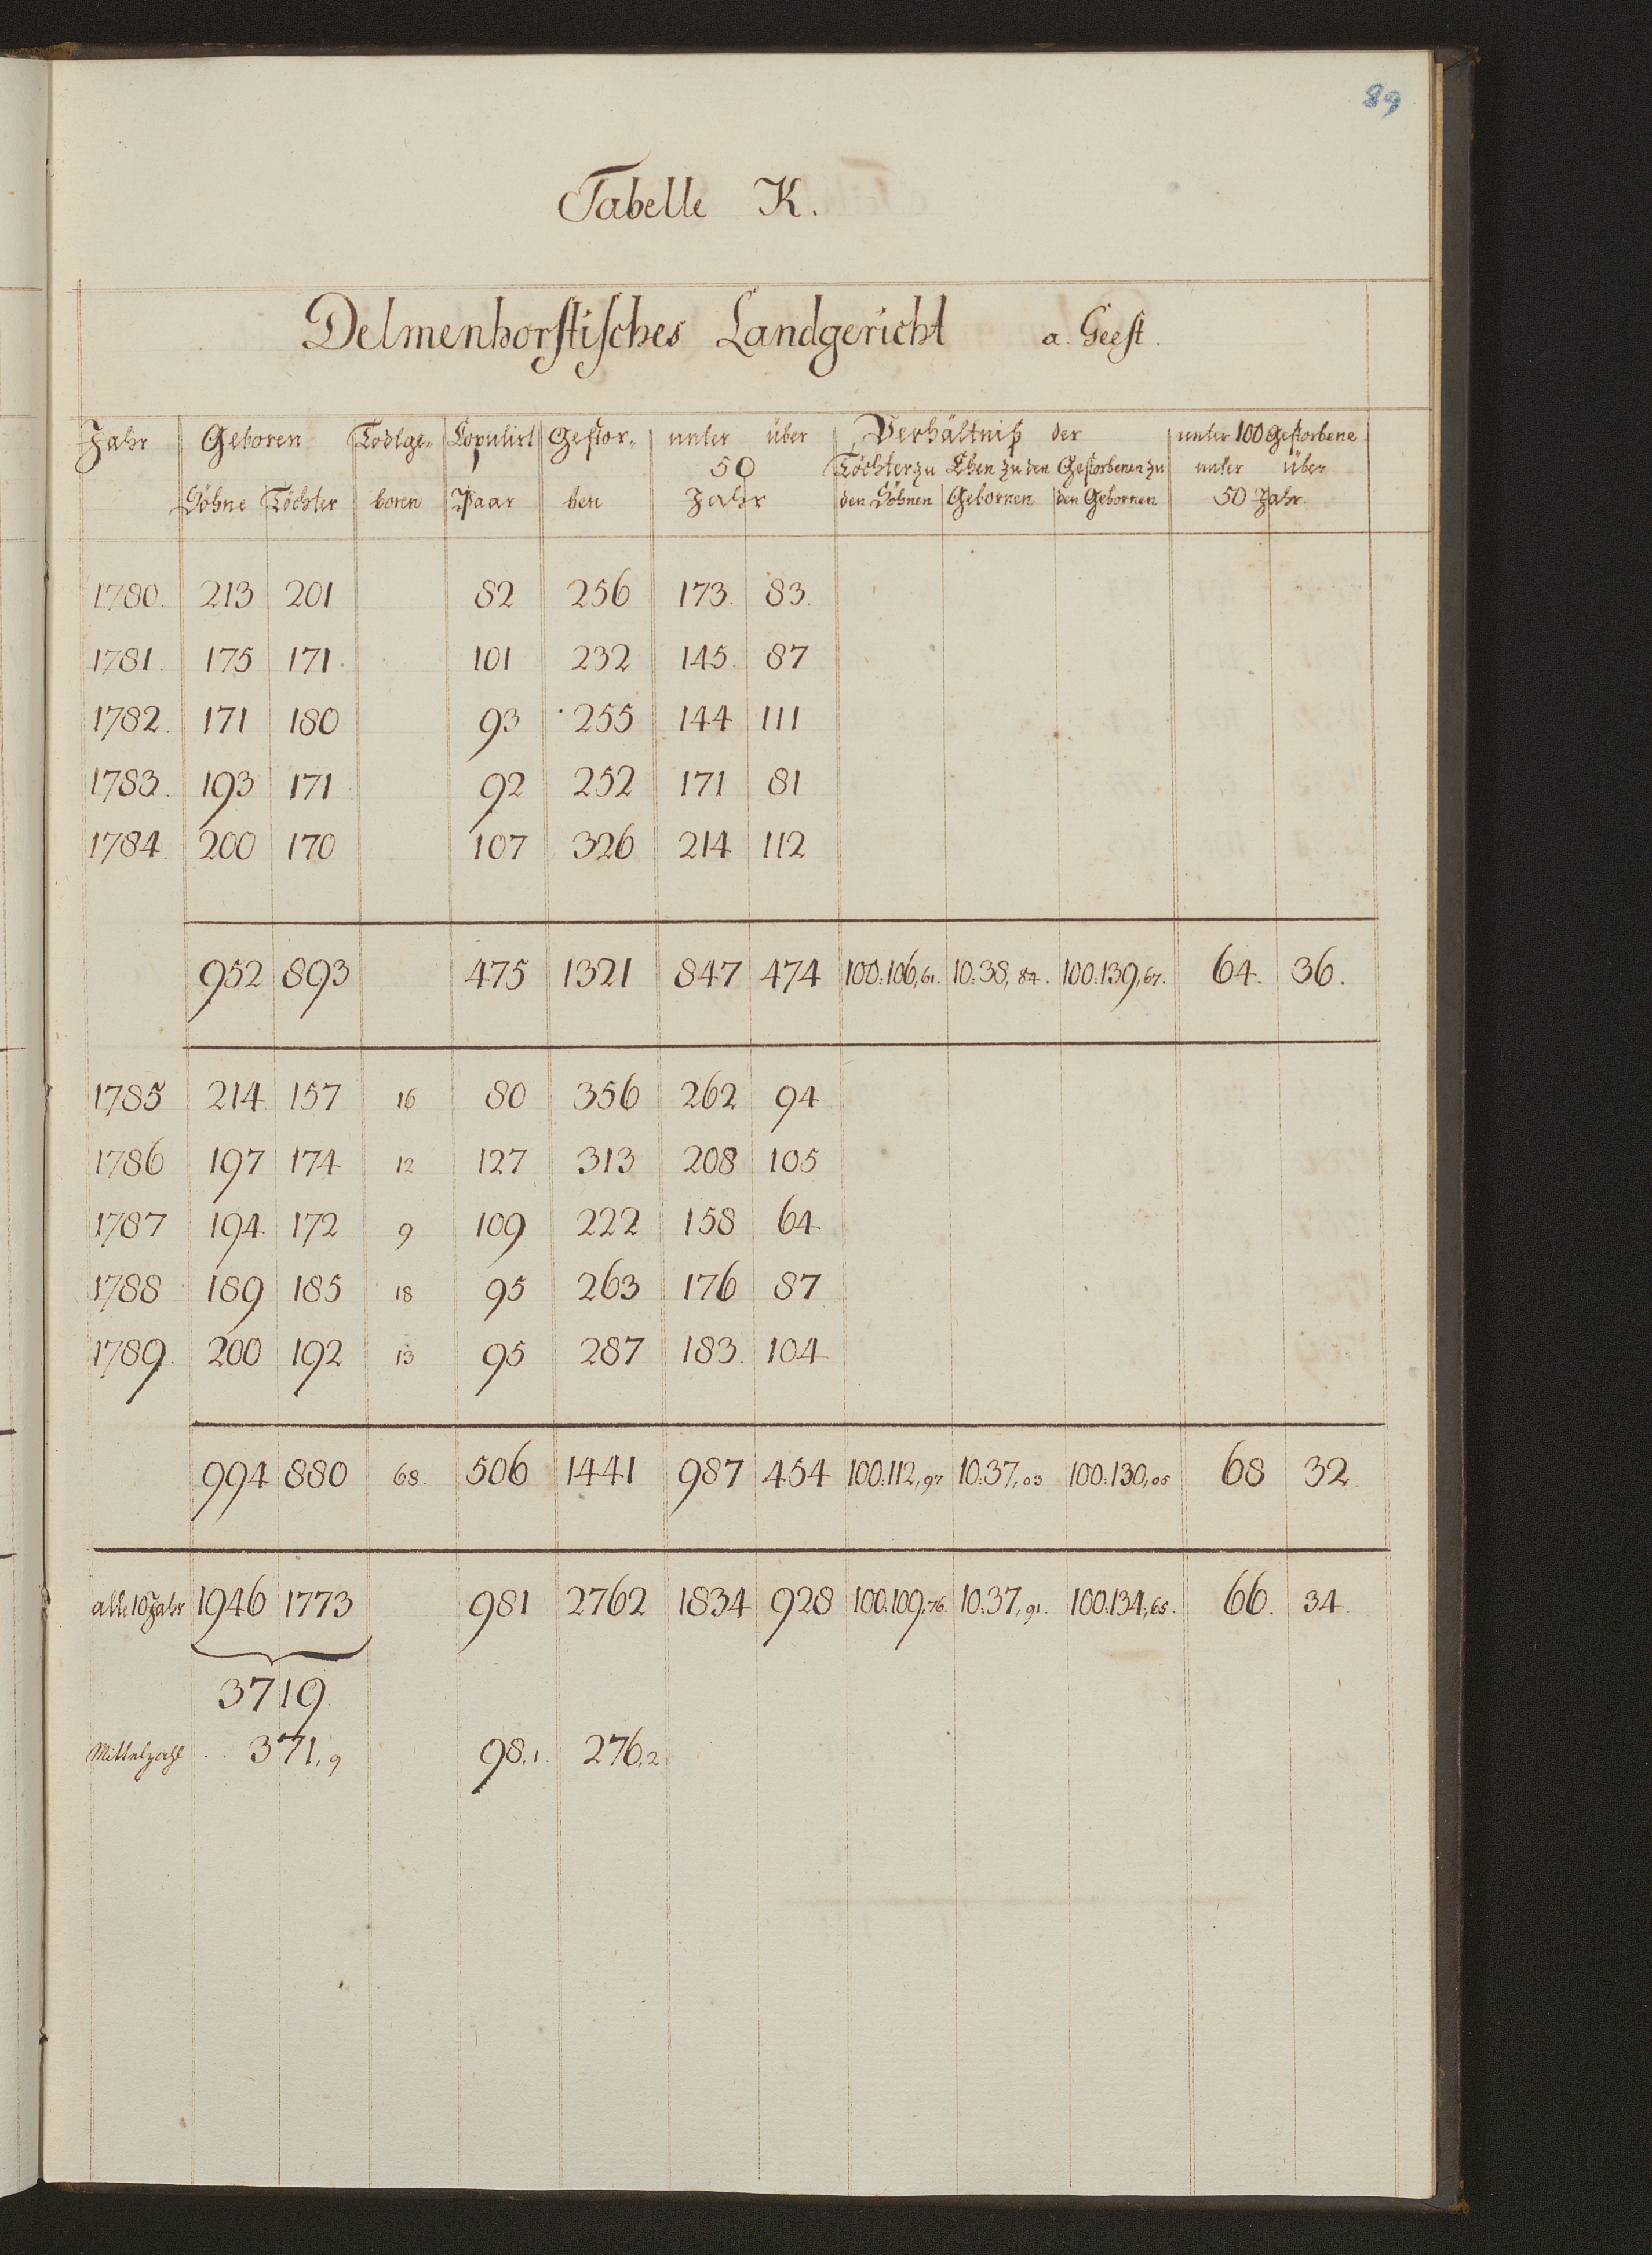 89
Tabelle K.
Delmenhorstisches Landgericht a. Geest.
Jahr Geboren Todtge- Copulirt Gestor- unter über Verhältniß der unter 100 Gestorbene
50 Töchter zu Ehen zu den Gestorbenen zu unter über
Söhne Töchter boren Paar ben Jahr den Söhnen Gebornen den Gebornen 50 Jahr.
1780. 213 201 82 256 173. 83.
1781. 175 171. 101 232 145. 87
1782. 171 180 93 255 144 111
1783. 193 171 92 252 171 81
1784. 200 170 107 326 214 112
952 893 475 1321 847 474 100:106,61. 10:38,84. 100:139,67. 64. 36.
1785 214 157 16 80 356 262 94
1786 197 174 12 127 313 208 105
1787 194 172 9 109 222 158 64
1788 189 185 18 95 263 176 87
1789. 200 192 13 95 287 183. 104
994 880 68. 506 1441 987 454 100:112,97 10:37,03 100:130,05 68 32.
alle 10 Jahr 1946 1773 981 2762 1834 928 100:109,76. 10:37,91. 100:134,65. 66. 34.
3719.
Mittelzahl .. 371,9 98,1. 276,2